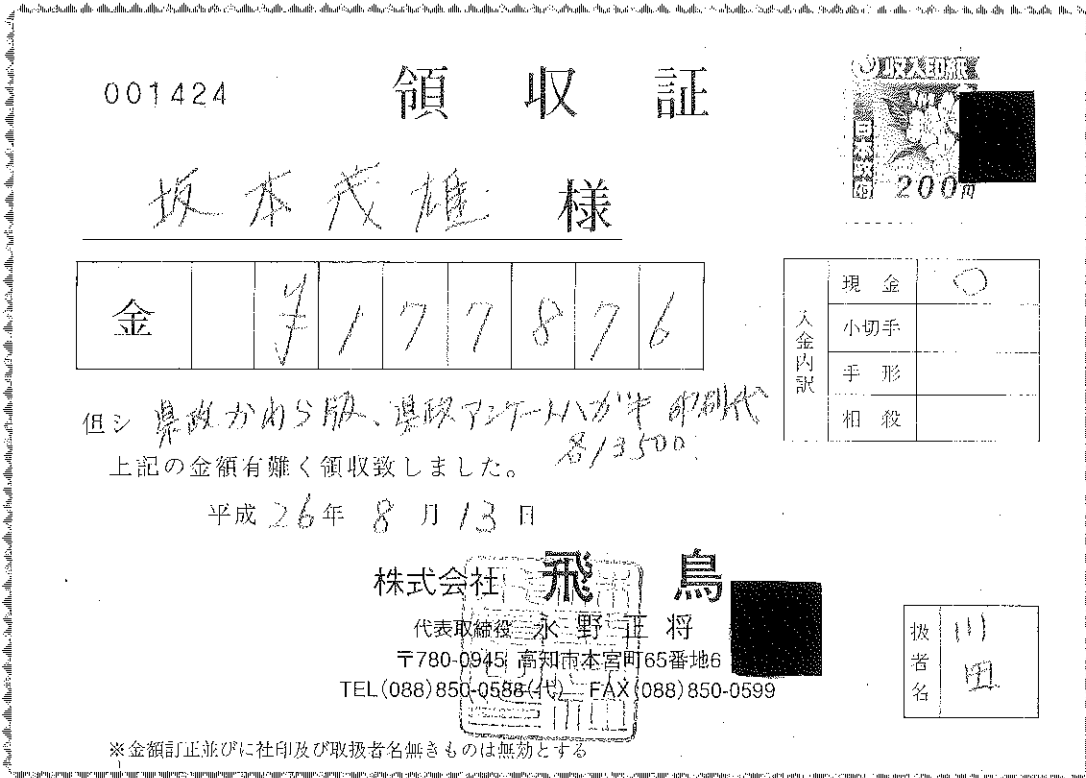 001424
領収証
収入印紙
日本政府
200円
坂本茂雄 様
金 ¥177876
入金内訳
現金 ○
小切手
手形
相殺
但シ 県政かわら版、県政アンケートハガキ 印刷代
各13500.
上記の金額有難く領収致しました。
平成26年8月13日
株式会社 飛鳥
代表取締役 永野正将
〒780-0945 高知市本宮町65番地6
TEL(088)850-0588(代) FAX(088)850-0599
扱者名 川田
※金額訂正並びに社印及び取扱者名無きものは無効とする